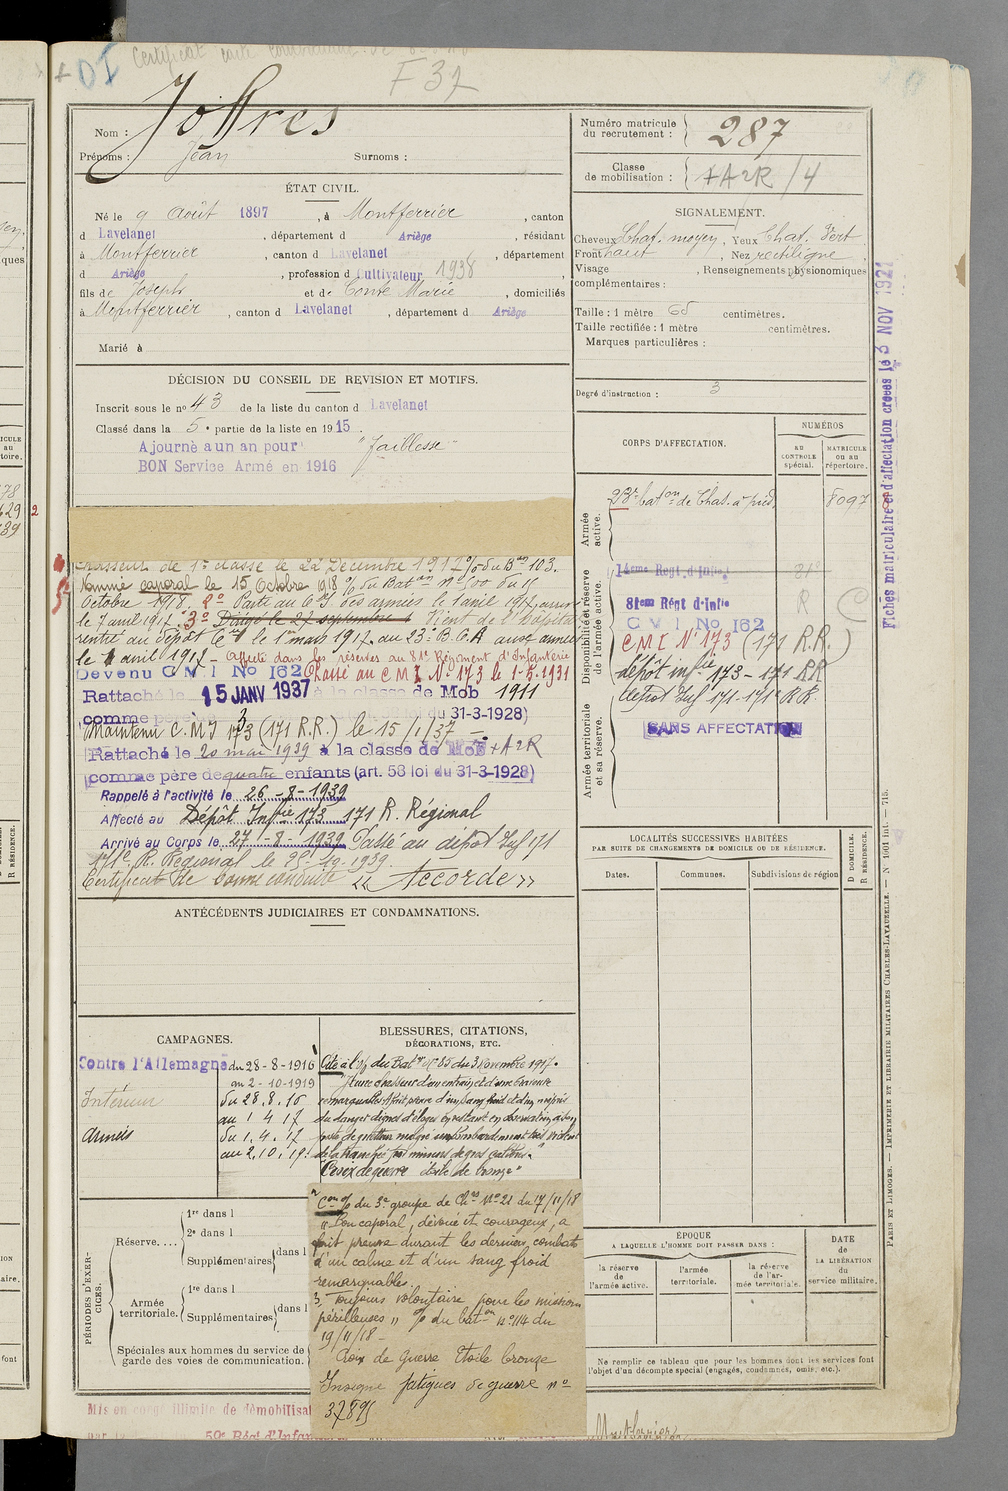 Certificat carte combattant
F 37
Nom : Joffres
Prénoms : Jean Surnoms :
ÉTAT CIVIL.
Né le 9 Août 1897, à Montferrier, canton
d Lavelanet, département d Ariège, résidant
à Montferrier, canton d Lavelanet, département
d Ariège, profession d Cultivateur 1938
fils de Joseph et de Conte Marie, domiciliés
à Montferrier, canton d Lavelanet, département d Ariège
Marié à
DÉCISION DU CONSEIL DE REVISION ET MOTIFS.
Inscrit sous le no 43 de la liste du canton d Lavelanet
Classé dans la 5e partie de la liste en 1915.
Ajourné a un an pour "faiblesse"
BON Service Armé en 1916
chasseur de 1re classe le 22 Décembre 1917 % du Bon 103.
Nommé caporal le 15 Octobre 1918 % du Baton no 500 du 15
Octobre 1918. 2o Parti au C.I. des armées le 1 avril 1917, arrivé
le 7 avril 1917. 3o Dirigé le 27 septembre Vient de l'Hôpital
rentré au dépôt le 1er mars 1917. au 23e B.C.A aux armées
le 1 avril 1917 - Affecté dans les réserves au 81e Régiment d'Infanterie
Devenu C M I No 162 Classé au C M I No 173 le 1-5-1931
Rattaché le 15 JANV 1937 à la classe de Mob 1911
comme père du 31-3-1928)
Maintenu C.M.I 173 (171 R.R.) le 15/1/37
Rattaché le 20 mai 1939 à la classe de Mob +A2R
comme père de quatre enfants (art. 58 loi du 31-3-1928)
Rappelé à l'activité le 26-8-1939
Affecté au Dépôt Infie 173 171 R. Régional
Arrivé au Corps le 27-8-1939 Passé au dépôt Inf 171
171e R. Régional le 25-10-1939
Certificat de bonne conduite « Accordé »
ANTÉCÉDENTS JUDICIAIRES ET CONDAMNATIONS.
CAMPAGNES.
Contre l'Allemagne du 28-8-1916
au 2-10-1919
Intérieur du 28.8.16
au 1 4 17
Armées du 1.4.17
au 2.10.19
BLESSURES, CITATIONS,
DÉCORATIONS, ETC.
Cité à l'% du Baton no 85 du 3 Novembre 1917.
"Jeune chasseur d'un entrain et d'une bravoure
remarquables. A fait preuve d'un sang froid et d'un mépris
du danger dignes d'éloges en restant en observation à son
poste de guetteur malgré un bombardement très violent
de la tranchée par minens de gros calibres."
Croix de guerre étoile de bronze"
2 Con % du 3e groupe de Chrs No 21 du 17/11/18
" Bon caporal, dévoué et courageux, a
fait preuve durant les derniers combats
d'un calme et d'un sang froid
remarquables.
3, Toujours volontaire pour les missions
périlleuses " % du baton no 114 du
19/11/18 -
Croix de Guerre Etoile bronze
Insigne fatigues de guerre no
37895
PÉRIODES D'EXERCICES.
Réserve....
1re dans l
2e dans l
Supplémentaires dans l
Armée territoriale.
1re dans l
Supplémentaires dans l
Spéciales aux hommes du service de
garde des voies de communication.
Mis en congé illimité de démobilisat
59e Régt d'Infan
Montferrier
Numéro matricule
du recrutement : 287
Classe
de mobilisation : +A2R/4
SIGNALEMENT.
Cheveux Chat. moyen, Yeux Chat. Vert
Front haut, Nez rectiligne
Visage , Renseignements physionomiques
complémentaires :
Taille : 1 mètre 65 centimètres.
Taille rectifiée : 1 mètre centimètres.
Marques particulières :
Degré d'instruction : 3
CORPS D'AFFECTATION.
NUMÉROS
AU CONTROLE spécial.
MATRICULE ou au répertoire.
Armée active.
23e baton de Chas. à pied 8097
Disponibilité et réserve de l'armée active.
14eme Regt d'Infie
81em Régt d'Infie R
C M I No 162
C M I No 173 (171 R.R.)
dépôt infie 173 - 171 RR
dépôt Inf 171 - 171e R.R.
Armée territoriale et sa réserve.
SANS AFFECTATION
LOCALITÉS SUCCESSIVES HABITÉES
PAR SUITE DE CHANGEMENTS DE DOMICILE OU DE RÉSIDENCE.
Dates. Communes. Subdivisions de région
D DOMICILE.
R RÉSIDENCE.
ÉPOQUE
A LAQUELLE L'HOMME DOIT PASSER DANS :
la réserve de l'armée active.
l'armée territoriale.
la réserve de l'armée territoriale.
DATE
de
LA LIBÉRATION
du
service militaire.
Ne remplir ce tableau que pour les hommes dont les services font
l'objet d'un décompte spécial (engagés, condamnés, omis, etc.).
Fiches matriculaire et d'affectation créées le 3 NOV 1921
PARIS ET LIMOGES. — IMPRIMERIE ET LIBRAIRIE MILITAIRES CHARLES-LAVAUZELLE. — No 1901 Int. — 715.